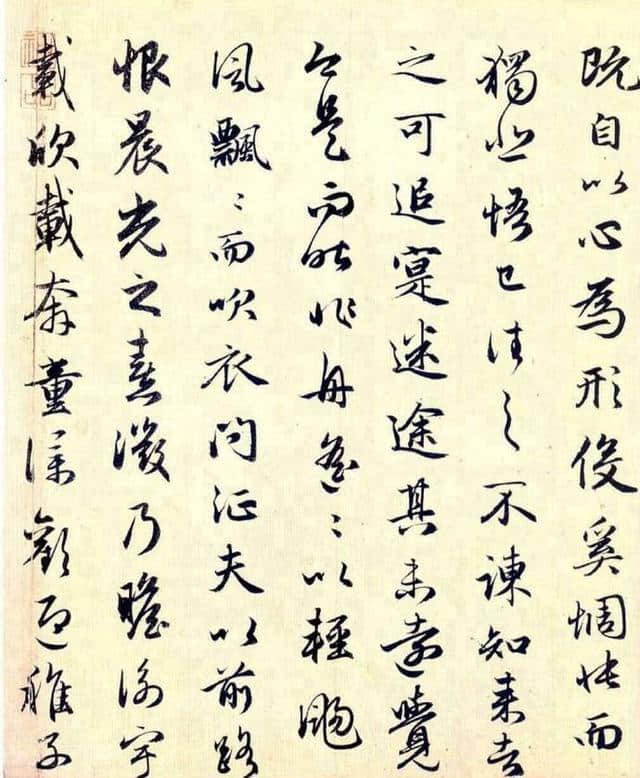 既自以心為形役奚惆悵而
獨悲悟已往之不諫知来者
之可追寔迷途其未遠覺
今是而昨非舟遙〻以輕颺
風飄〻而吹衣問征夫以前路
恨晨光之熹微乃瞻衡宇
載欣載奔童僕歡迎稚子